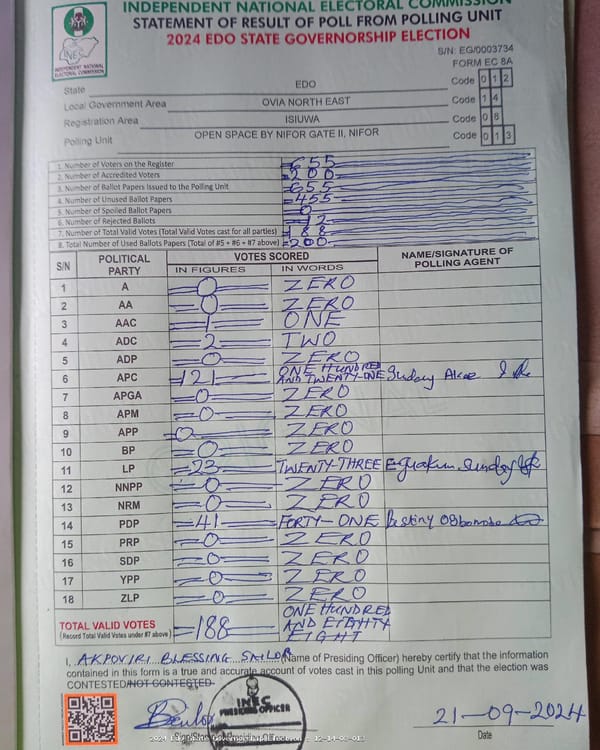 INDEPENDENT NATIONAL ELECTORAL COMMISSION
STATEMENT OF RESULT OF POLL FROM POLLING UNIT
2024 EDO STATE GOVERNORSHIP ELECTION
INEC
INDEPENDENT NATIONAL ELECTORAL COMMISSION
S/N: EG/0003734
FORM EC 8A
State EDO Code 0 1 2
Local Government Area OVIA NORTH EAST Code 1 4
Registration Area ISIUWA Code 0 8
Polling Unit OPEN SPACE BY NIFOR GATE II, NIFOR Code 0 1 3
1. Number of Voters on the Register 655
2. Number of Accredited Voters 200
3. Number of Ballot Papers Issued to the Polling Unit 655
4. Number of Unused Ballot Papers 455
5. Number of Spoiled Ballot Papers 0
6. Number of Rejected Ballots 12
7. Number of Total Valid Votes (Total Valid Votes cast for all parties) 188
8. Total Number of Used Ballots Papers (Total of #5 + #6 + #7 above) 200
S/N POLITICAL PARTY VOTES SCORED NAME/SIGNATURE OF POLLING AGENT
IN FIGURES IN WORDS
1 A 0 ZERO
2 AA 0 ZERO
3 AAC 1 ONE
4 ADC 2 TWO
5 ADP 0 ZERO
6 APC 121 ONE HUNDRED AND TWENTY-ONE Sunday
7 APGA 0 ZERO
8 APM 0 ZERO
9 APP 0 ZERO
10 BP 0 ZERO
11 LP 23 TWENTY-THREE Sunday
12 NNPP 0 ZERO
13 NRM 0 ZERO
14 PDP 41 FORTY-ONE Destiny
15 PRP 0 ZERO
16 SDP 0 ZERO
17 YPP 0 ZERO
18 ZLP 0 ZERO
TOTAL VALID VOTES (Record Total Valid Votes under #7 above) 188 ONE HUNDRED AND EIGHTY EIGHT
I, AKPOVIRI BLESSING SAILOR (Name of Presiding Officer) hereby certify that the information
contained in this form is a true and accurate account of votes cast in this polling Unit and that the election was
CONTESTED/NOT CONTESTED.
INEC
PRESIDING OFFICER
21-09-2024
Date